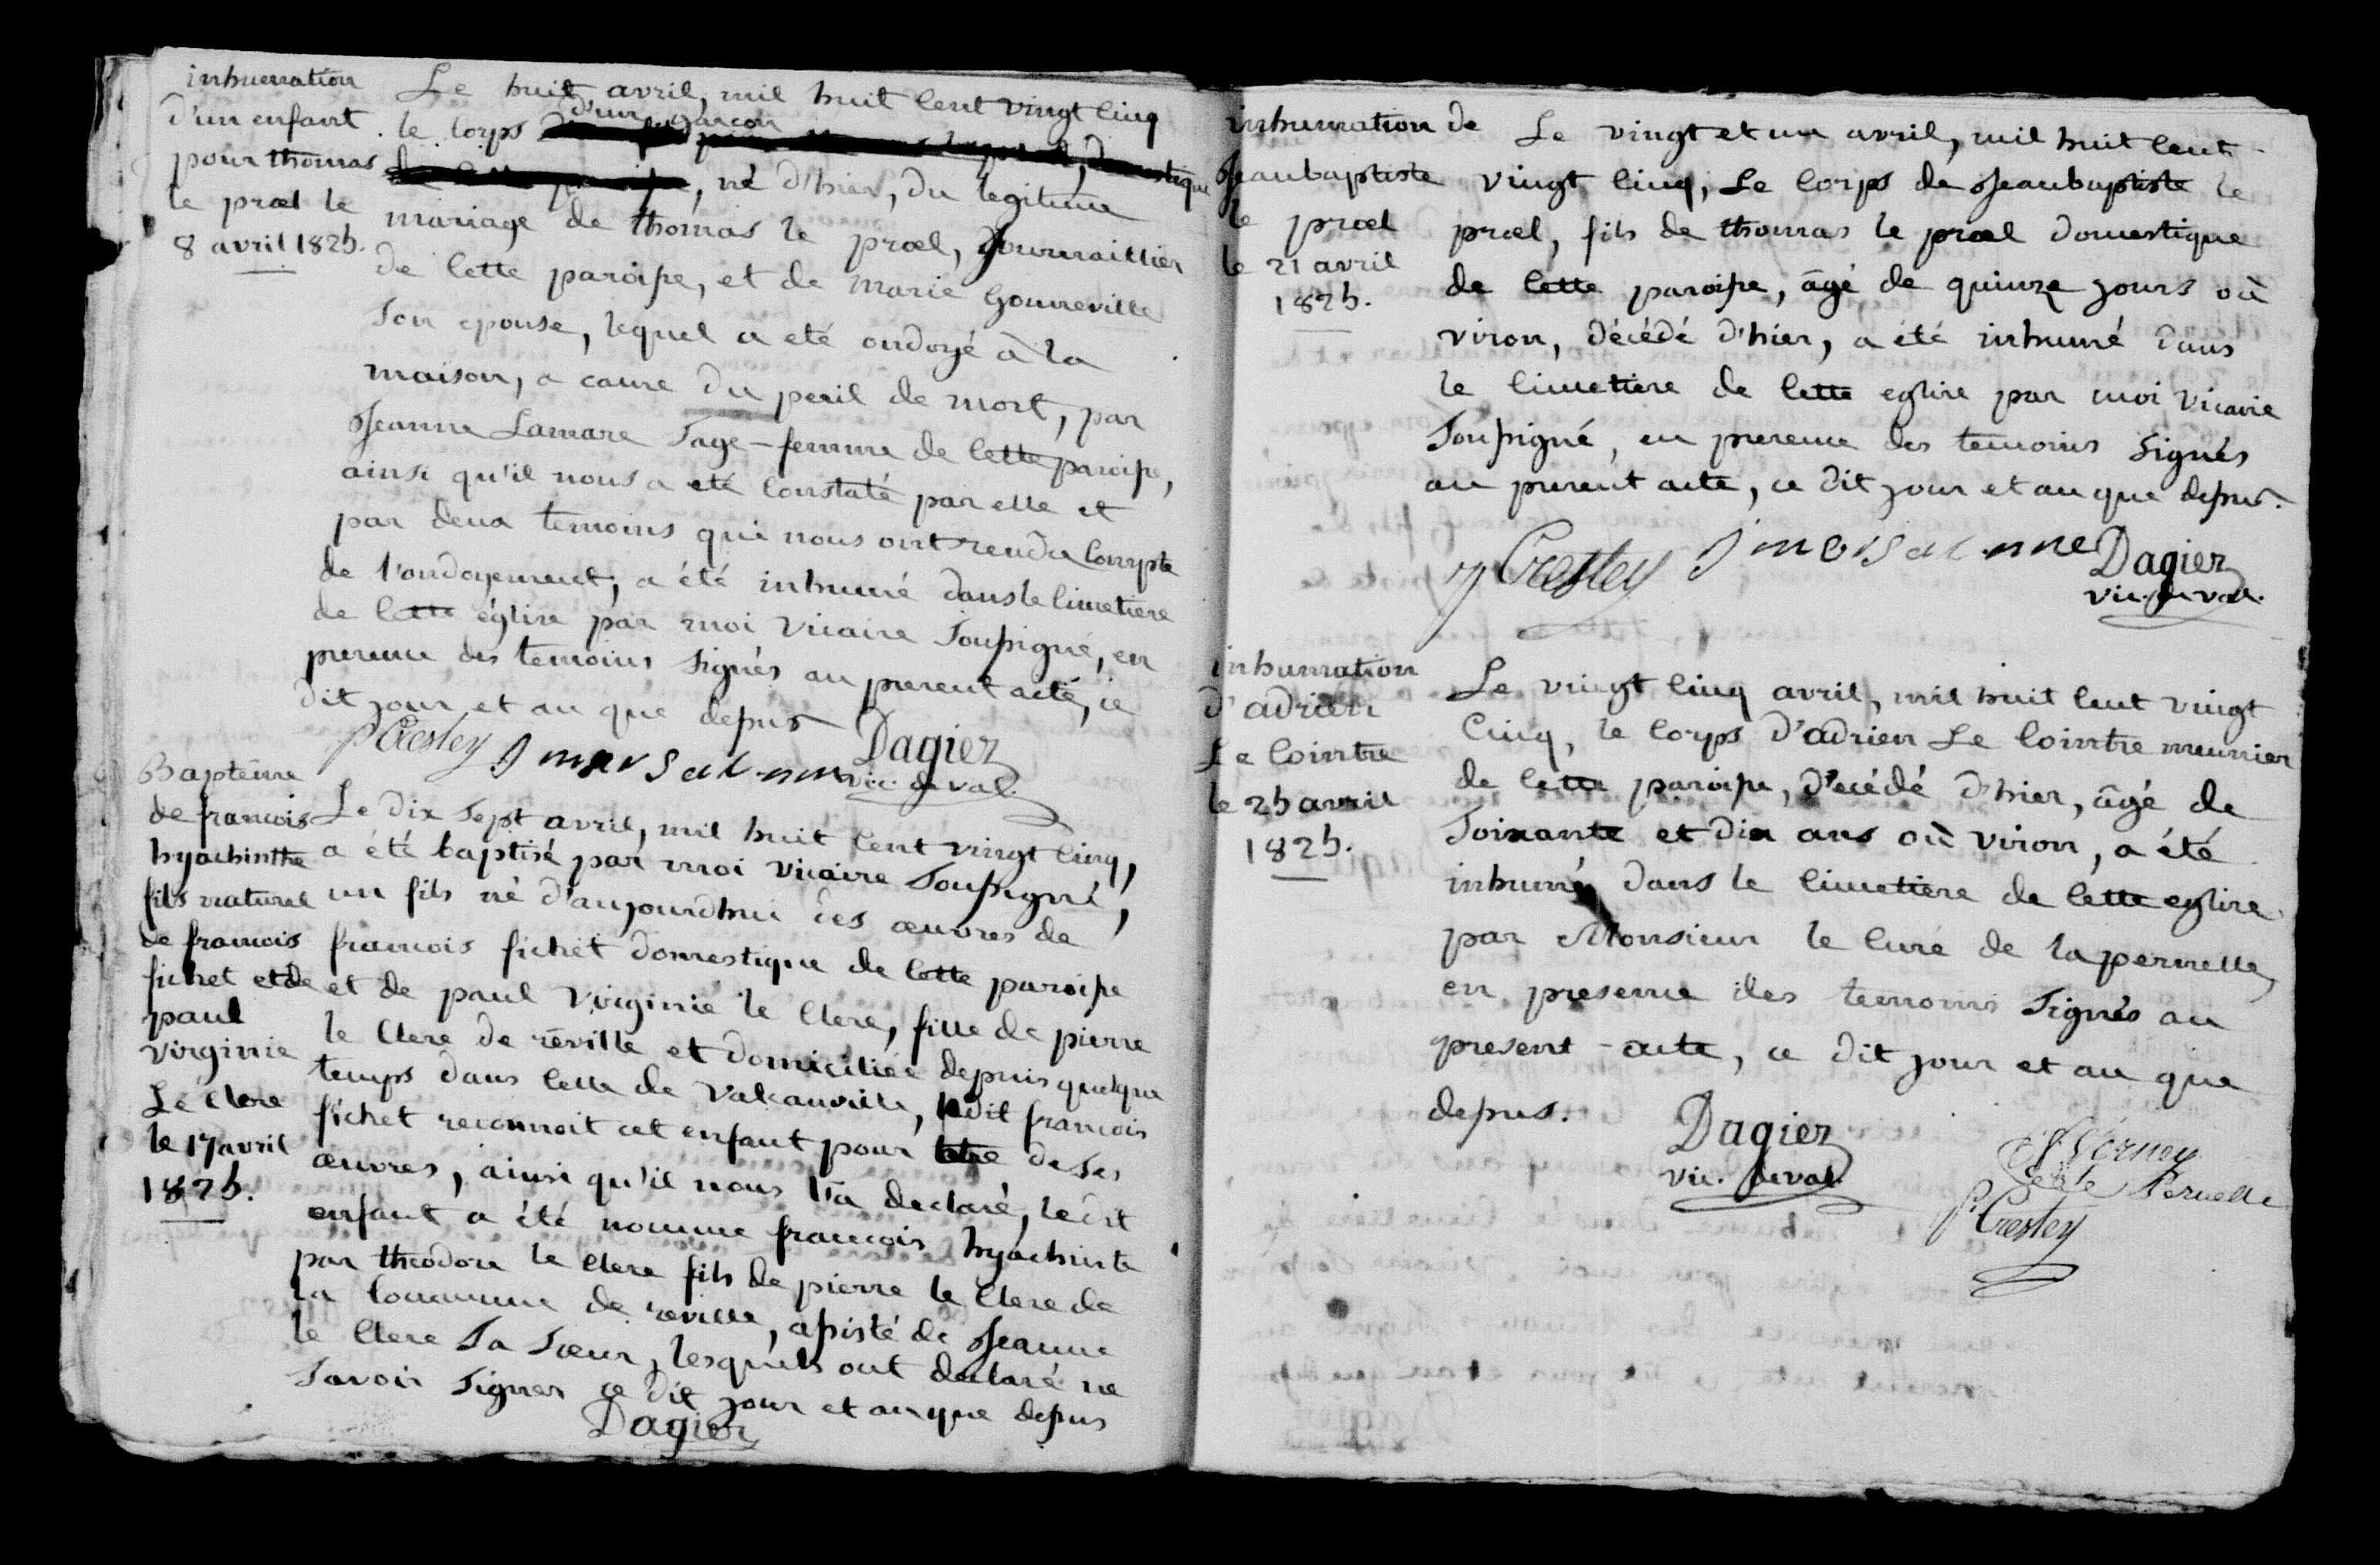 inhumation
d'un enfant
pour thomas
le prael le
8 avril 1825.
Le huit avril, mil huit cent vingt cinq
d'un garcon
le corps
, né d'hier, du legitime
mariage de thomas le prael, journaillier
de cette paroisse, et de marie gonneville
son epouse, lequel a eté ondoyé à la
maison, a cause du peril de mort, par
Jeanne Lamare sage-femme de cette paroisse,
ainsi qu'il nous a eté constaté par elle et
par deux temoins qui nous ont rendu compte
de l'ondoyement, a été inhumé dans le cimetiere
de cette église par moi vicaire soussigné, en
presence des temoins signés au present acte, ce
dit jour et an que dessus
P Crestey
Dagier
vic. de val.
Baptême
de francois
hyachinthe
fils naturel
de francois
fichet et de
paul
virginie
Le clerc
le 17 avril
1825.
Le dix sept avril, mil huit cent vingt cinq,
a été baptisé par moi vicaire soussigné,
un fils né d'aujourdhui des œuvres de
francois fichet domestique de cette paroisse
et de paul virginie le clerc, fille de pierre
le clerc de réville et domiciliée depuis quelque
temps dans celle de valcanville, ledit francois
fichet reconnoit cet enfant pour etre de ses
œuvres, ainsi qu'il nous l'a declaré, ledit
enfant a été nommé francois hyachinte
par théodore le clerc fils de pierre le clerc de
la commune de reville, assisté de Jeanne
le clerc sa sœur, lesquels ont declaré ne
savoir signer ce dit jour et an que dessus
Dagier
inhumation de
Jeanbaptiste
le prael
le 21 avril
1825.
Le vingt et un avril, mil huit cent
vingt cinq, Le corps de Jeanbaptiste le
prael, fils de thomas le prael domestique
de cette paroisse, âgé de quinze jours où
viron, décédé d'hier, a été inhumé dans
le cimetiere de cette eglise par moi vicaire
soussigné, en presence des temoins signés
au present acte, ce dit jour et an que dessus.
P Crestey
Dagier
vic. de val.
inhumation
d'adrien
Le cointre
le 25 avril
1825.
Le vingt cinq avril, mil huit cent vingt
cinq, le corps d'adrien Le cointre meunier
de cette paroisse, d'écédé d'hier, âgé de
soixante et dix ans où viron, a été
inhumé dans le cimetiere de cette eglise
par Monsieur le curé de la pernelle,
en presence des temoins signés au
present acte, ce dit jour et an que
dessus.
Dagier
vic. de val.
Pernelle
P. Crestey